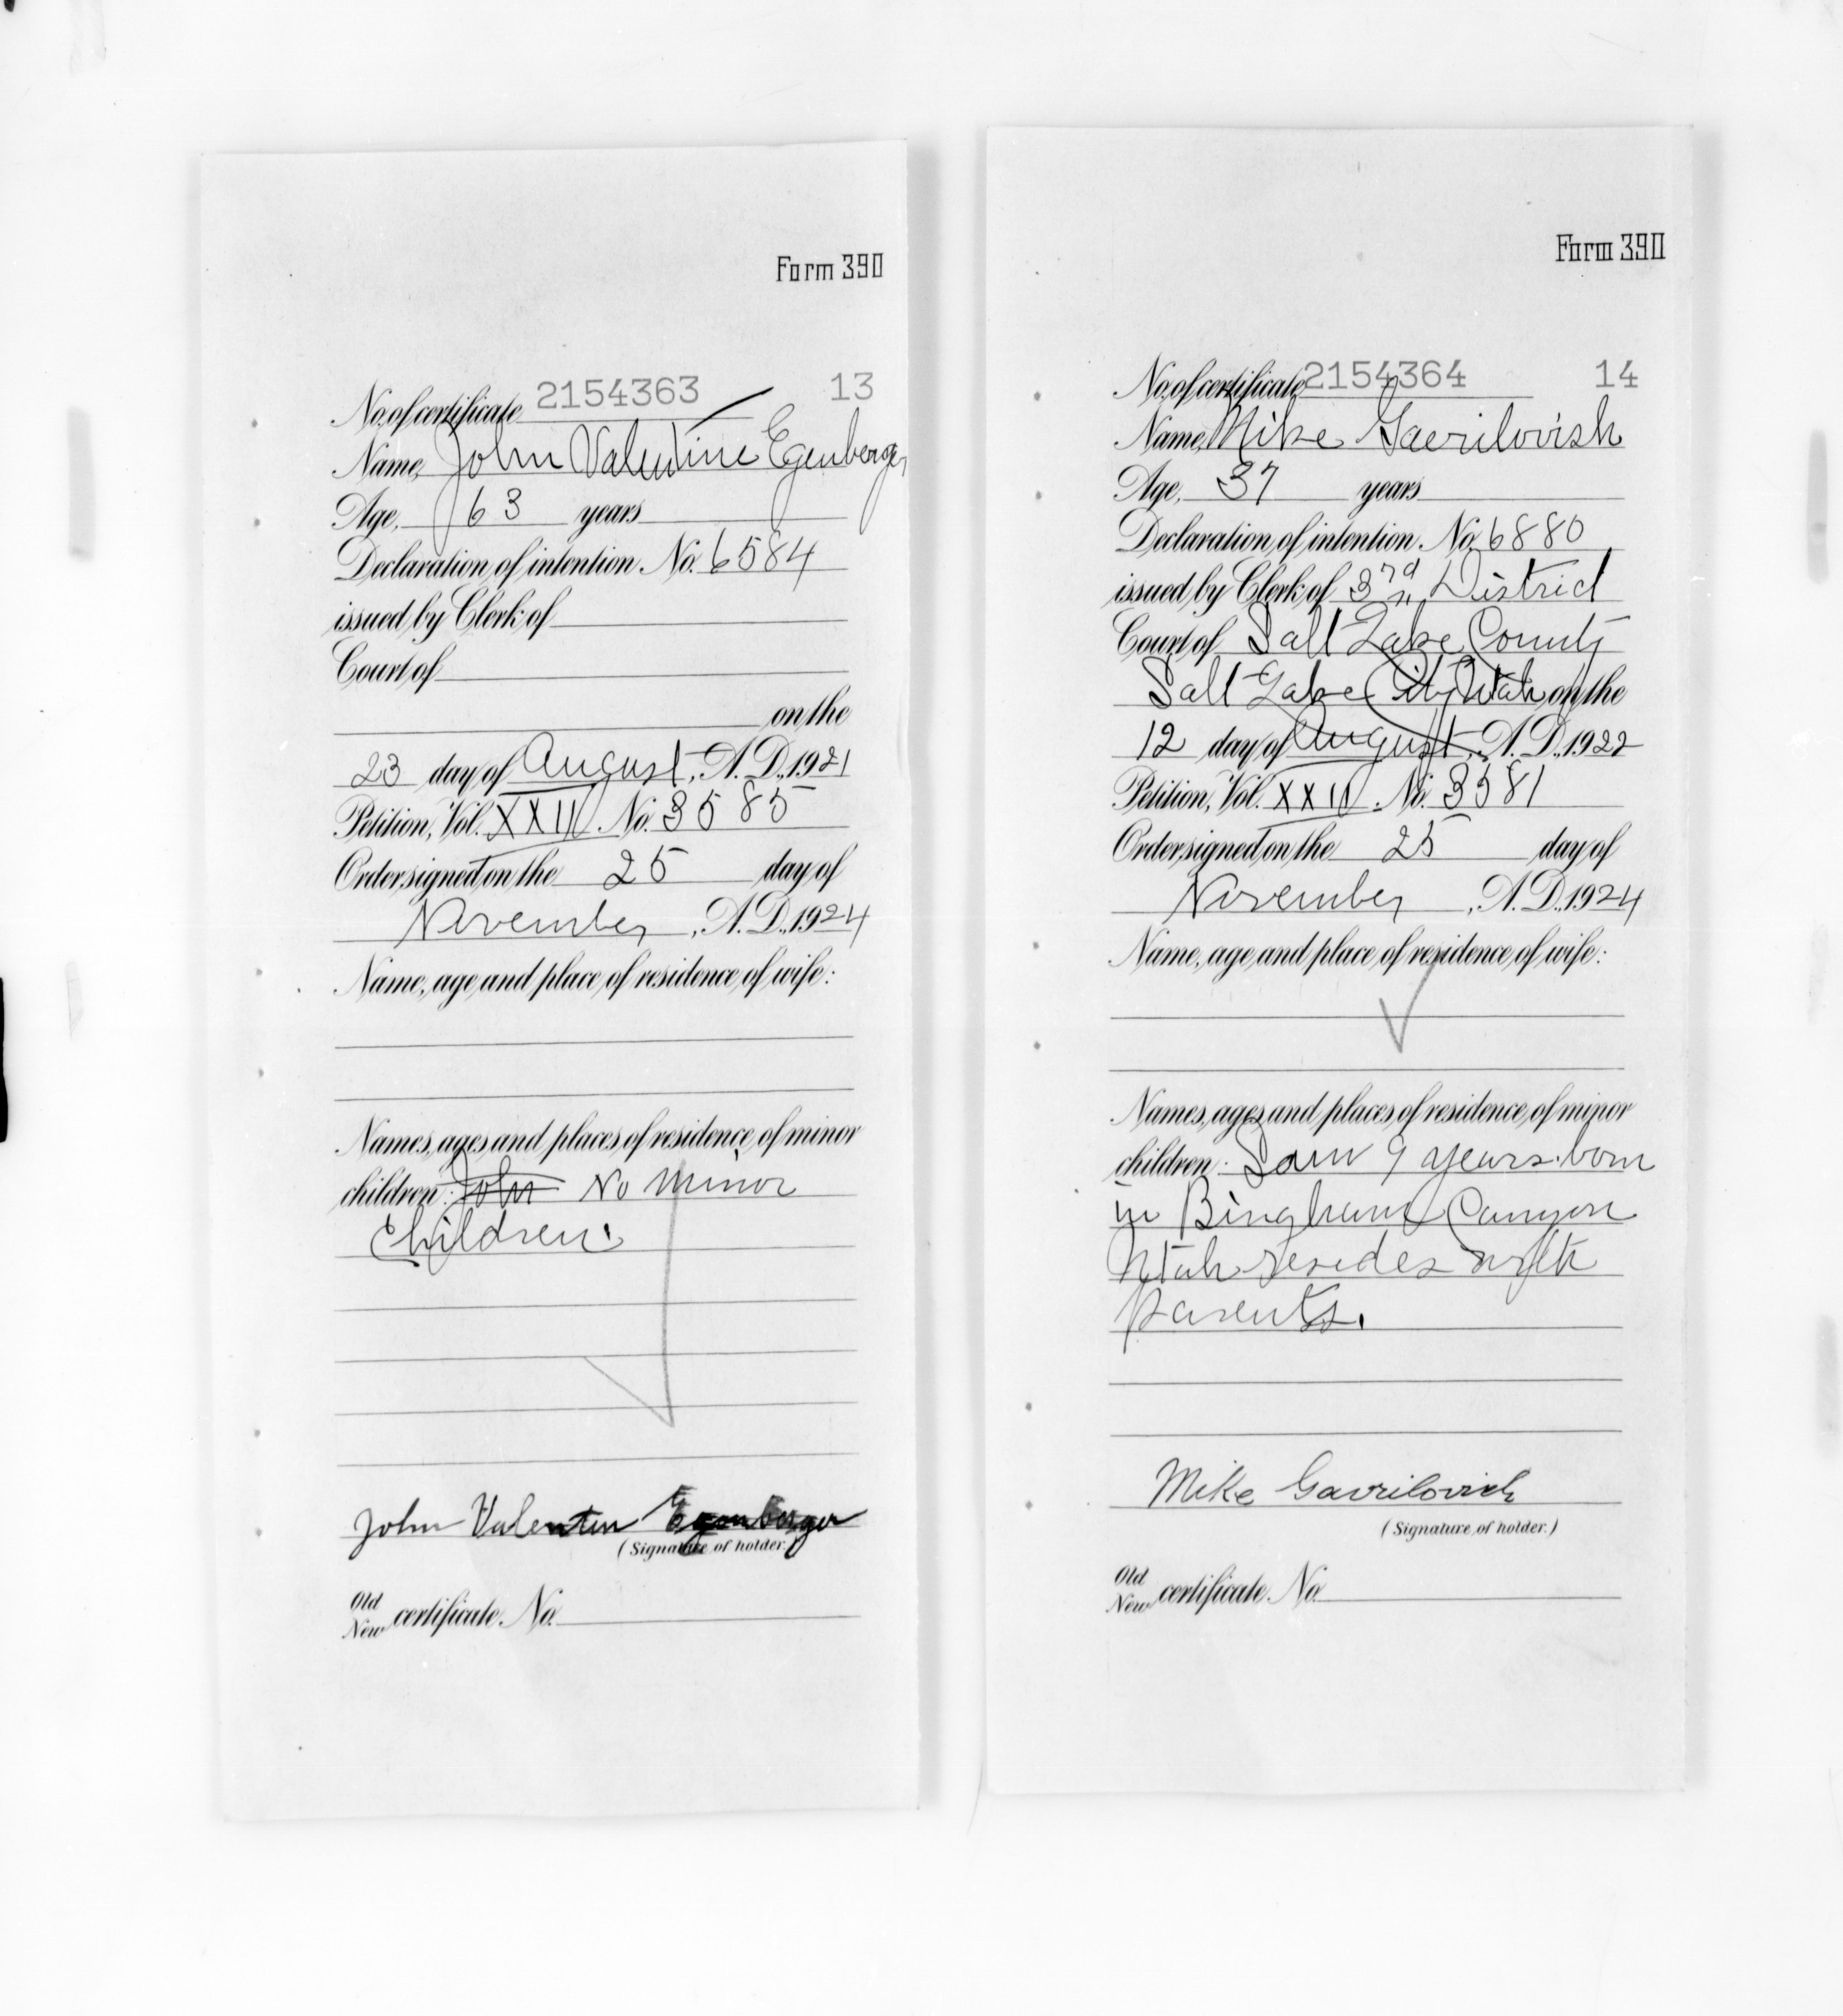 Form 390
No. of certificate 2154363 13
Name, John Valentine Egenberger
Age, 63 years
Declaration of intention No. 6584
issued by Clerk of
Court of
on the
23 day of August, A. D., 1921
Petition, Vol. XXII No. 3585
Order signed on the 25 day of
November, A. D., 1924
Name, age and place of residence of wife:
Names, ages and places of residence of minor
children: John No Minor
Children.
John Valentin Egenberger
(Signature of holder.)
Old
New certificate No.
Form 390
No. of certificate 2154364 14
Name, Mike Gavrilovish
Age, 37 years
Declaration of intention No. 6880
issued by Clerk of 3rd District
Court of Salt Lake County
Salt Lake City Utah on the
12 day of August, A. D., 1922
Petition, Vol. XXII No. 3581
Order signed on the 25 day of
November, A. D., 1924
Name, age and place of residence of wife:
Names, ages and places of residence of minor
children: Sam 9 years born
in Bingham Canyon
Utah resides with
parents.
Mike Gavrilovich
(Signature of holder.)
Old
New certificate No.